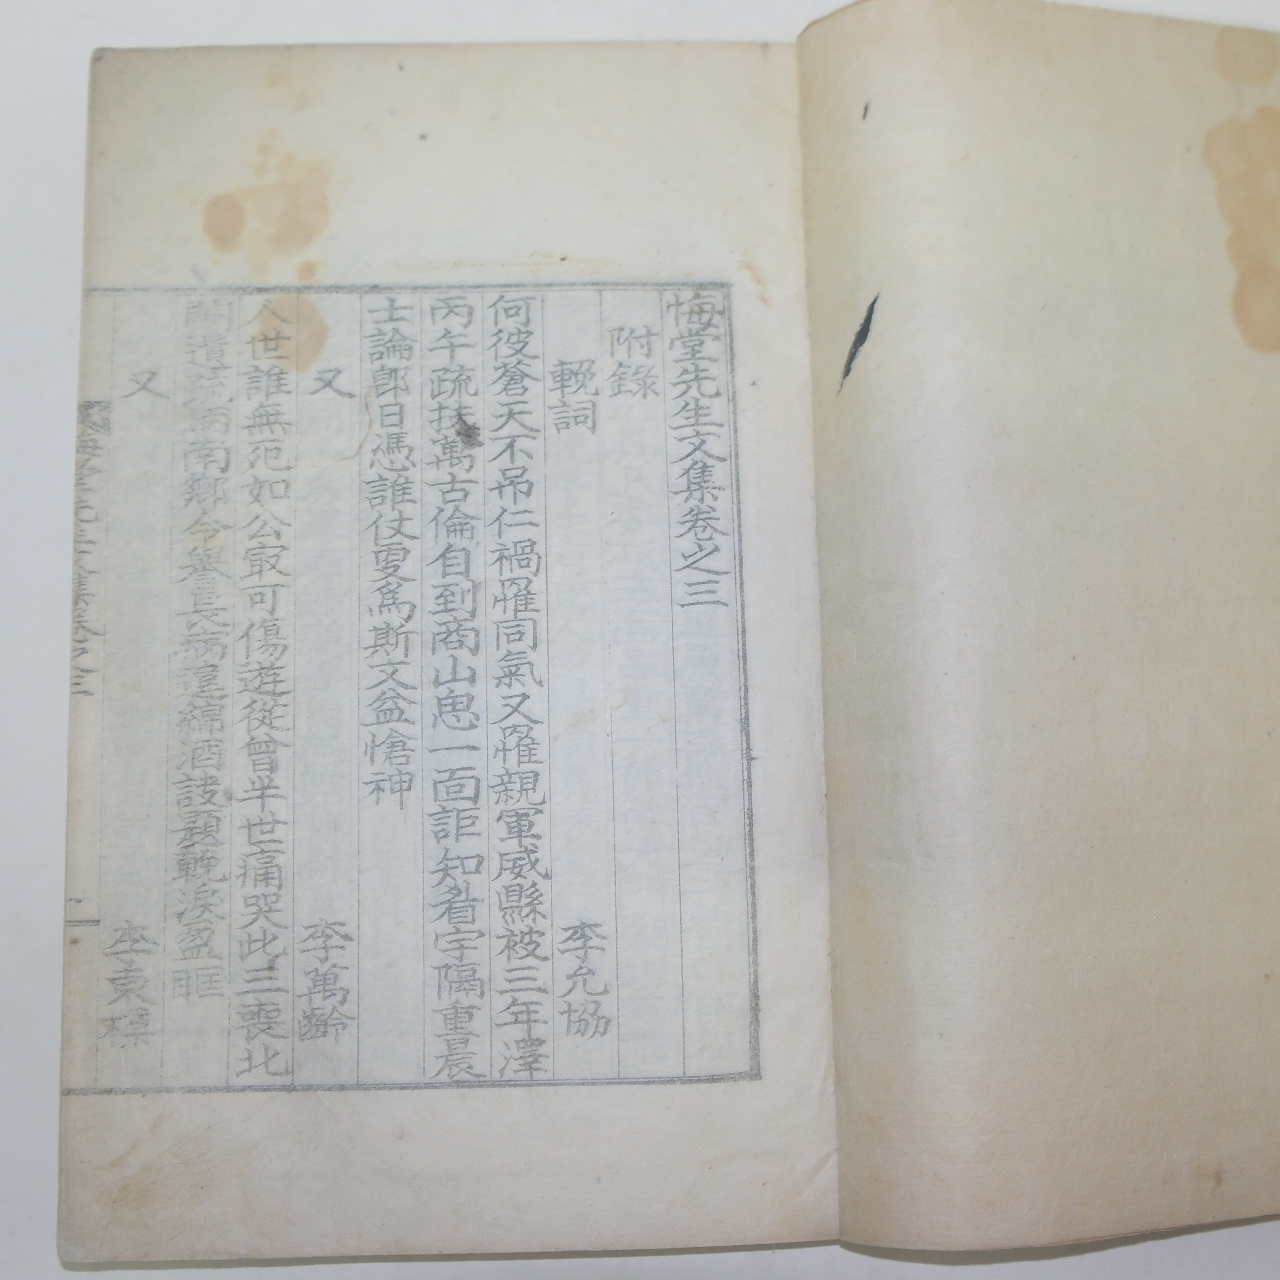 悔堂先生文集卷之三
附錄
輓詞
李允協
何彼蒼天不吊仁禍罹同氣又罹親軍威縣被三年澤
丙午疏扶萬古倫自到商山思一面詎知看字隔重晨
士論卽日憑誰仗更爲斯文益愴神
又
李萬齡
人世誰無死如公最可傷遊從曾半世痛哭此三喪北
遺疏南鄉今擧長病違綿酒誄題輓淚盈眶
又
李東標
悔堂先生文集卷之三
一